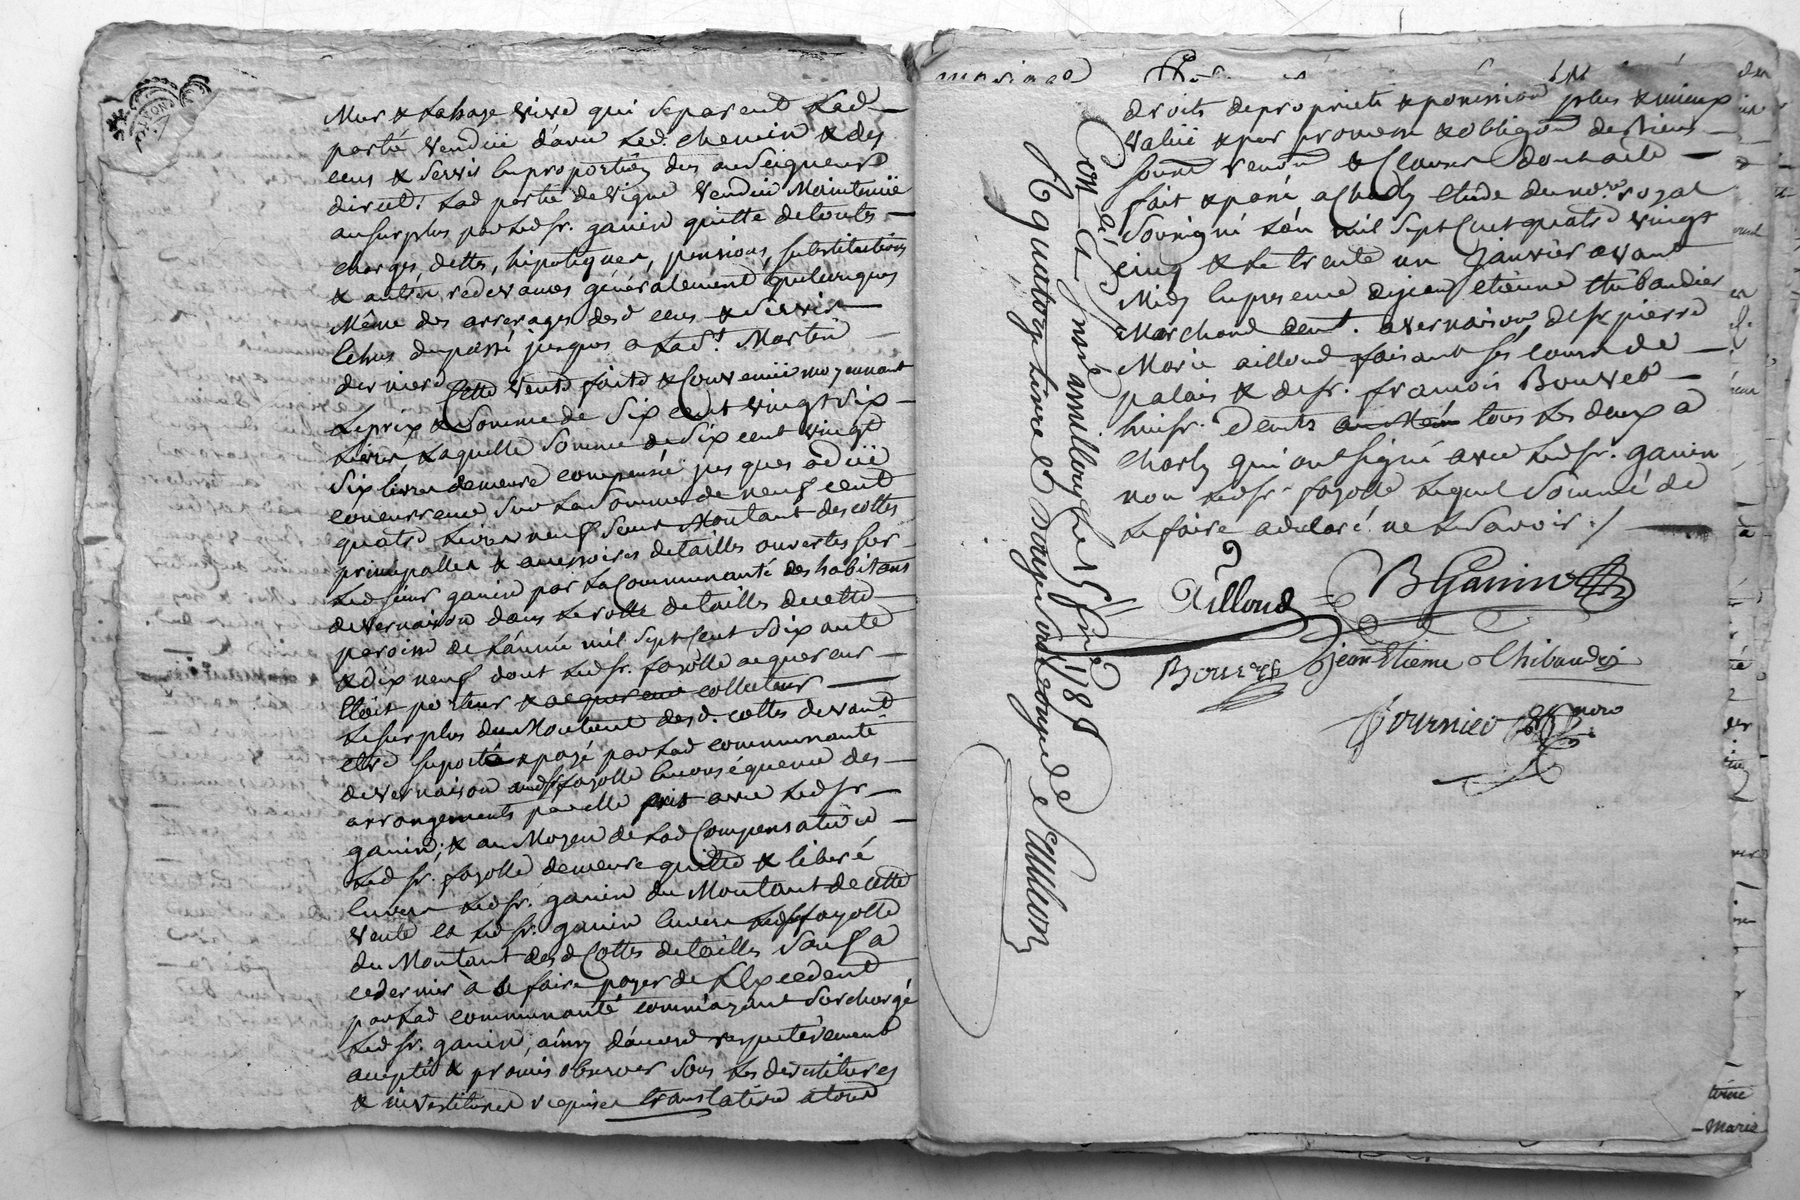 LYON
Mur & la haye vive qui separent lad.
partie vendüe d'avec led. chemin & des
cens & servis en proportion des aux Seigneurs
directs. Lad partie de vigne vendüe Maintenüe
au surplus par led sr. ganin quitte de toutes
charges, dettes, hipoteques, pensions, substitutions
& autres redevances généralement quelconques
Même des arrerages desd cens & servis
Echus du passé jusques a la St. Martin
derniere Cette vente faite & convenüe moyennant
le prix & somme de six cent vingt six
Livres Laquelle somme de six cent vingt
six livres demeure compensée jusques a düe
concurrence sur la somme de neuf cent
quatre Livres neuf sous Montant des cottes
principalles & accessoires de tailles ouvertes sur
led sieur ganin par la Communauté des habitans
de vernaison dans le rolle de tailles de cette
paroisse de l'année mil sept cent soixante
& dix neuf dont led sr. fayolle acquereur
Etoit porteur & acquereur collecteur
Le surplus du Montant desd. cottes devant
etre suporté & payé par lad communauté
de vernaison aud sr fayolle en conséquence des
arrangements par elle pris avec led sr
ganin; & au Moyen de lad Compensation
led sr. fayolle demeure quitte & libéré
Envers led sr. ganin du Montant de cette
vente et led sr. ganin Envers led sr fayolle
du Montant desd Cottes de tailles sauf a
ce dernier à se faire payer de l'Excedent
par lad communauté comme ayant surchargé
led sr. ganin; ainsy d'accord respectivement
accepté & promis observer sous les devestitures
& investitures requises translation a tous
droits de proprieté & possession plus & mieux
value & par promesse & obligaõn de biens
& Clauses
fait & passé a Charly etude du nore royal
soussigné L'an mil sept Cent quatre vingt
cinq & le trente un Janvier avant
Midy En presence de jean etienne thibaudier
Marchand demt. a vernaison, de sr pierre
Marie ailloud faisant ses cours de
palais & de sr. francois Bouvet
huisr. demts au Mem tous les deux a
Charly qui ont signé avec led sr. ganin
non led sr fayolle Lequel sommé de
le faire a declaré ne le savoir ./
Ailloud
B Ganin
Bouvet
jean Etienne Thibaudier
fournier nore
Con-lé & inséré a millery le 5 févr 1785
R quatorze livres douze sous